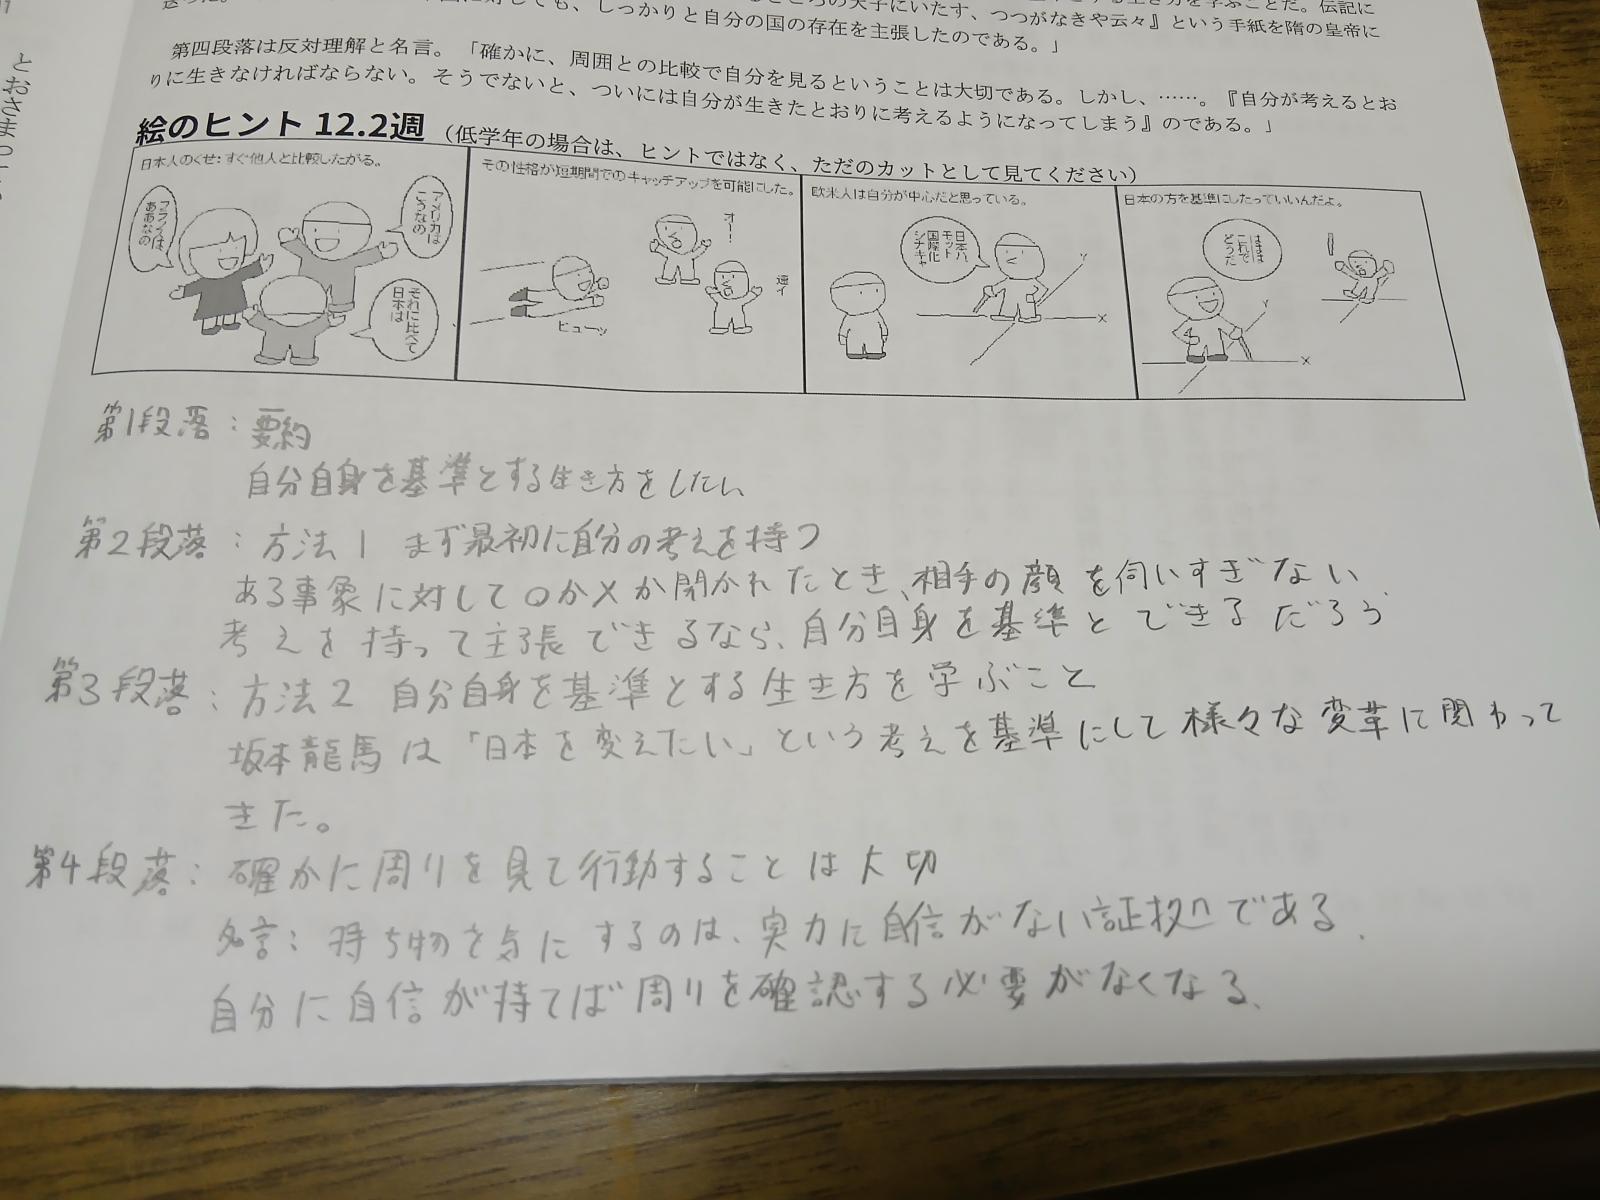 とおさまっ
しっかりと自分の国の存在を主張したのである。」
ころの天子にいたす、つつがなきや云々』という手紙を隋の皇帝に
第四段落は反対理解と名言。「確かに、周囲との比較で自分を見るということは大切である。しかし、……。『自分が考えるとお
りに生きなければならない。そうでないと、ついには自分が生きたとおりに考えるようになってしまう』のである。」
絵のヒント 12.2週 (低学年の場合は、ヒントではなく、ただのカットとして見てください)
日本人のくせ:すぐ他人と比較したがる。
フランスは、
ああなの
アメリカは
こうなの
それに比べて
日本は
その性格が短期間でのキャッチアップを可能にした。
オー!
速イ
ヒューッ
欧米人は自分が中心だと思っている。
日本ハ、
モット
国際化
シナキャ
Y
X
日本の方を基準にしたっていいんだよ。
これで
どうだ
!
Y
X
第1段落:要約
自分自身を基準とする生き方をしたい
第2段落:方法1 まず最初に自分の考えを持つ
ある事象に対して○か×か聞かれたとき、相手の顔を伺いすぎない
考えを持って主張できるなら、自分自身を基準とできるだろう
第3段落:方法2 自分自身を基準とする生き方を学ぶこと
坂本龍馬は「日本を変えたい」という考えを基準にして様々な変革に関わって
きた。
第4段落:確かに周りを見て行動することは大切
名言:持ち物を気にするのは、実力に自信がない証拠である.
自分に自信が持てば周りを確認する必要がなくなる.